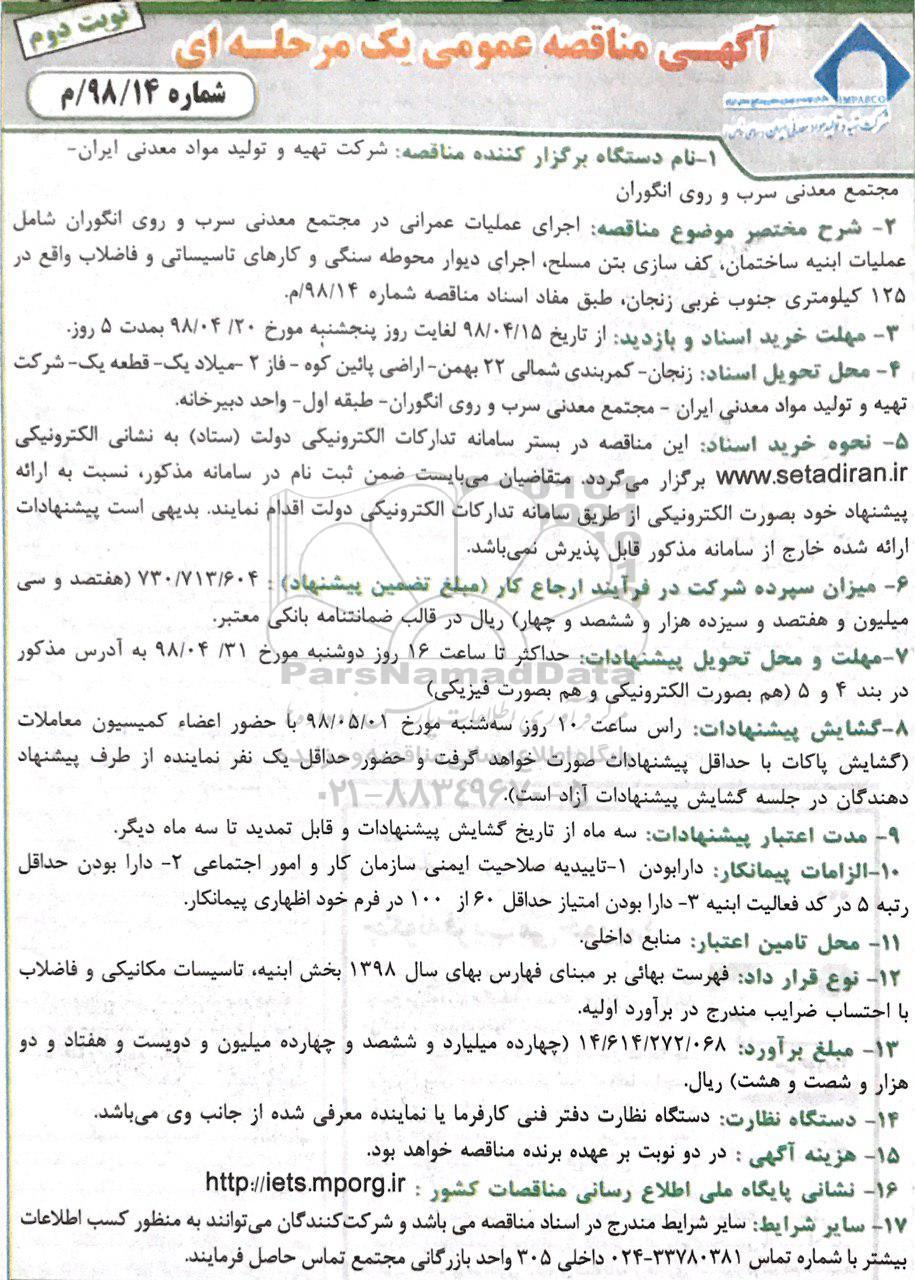 نوبت دوم
آگهی مناقصه عمومی یک مرحله ای
شماره ۹۸/۱۴/م
IMPASCO
۱-نام دستگاه برگزار کننده مناقصه: شرکت تهیه و تولید مواد معدنی ایران-
مجتمع معدنی سرب و روی انگوران
۲- شرح مختصر موضوع مناقصه: اجرای عملیات عمرانی در مجتمع معدنی سرب و روی انگوران شامل
عملیات ابنیه ساختمان، کف سازی بتن مسلح، اجرای دیوار محوطه سنگی و کارهای تاسیساتی و فاضلاب واقع در
۱۲۵ کیلومتری جنوب غربی زنجان، طبق مفاد اسناد مناقصه شماره ۹۸/۱۴/م.
۳- مهلت خرید اسناد و بازدید: از تاریخ ۹۸/۰۴/۱۵ لغایت روز پنجشنبه مورخ ۲۰/ ۹۸/۰۴ بمدت ۵ روز.
۴- محل تحویل اسناد: زنجان- کمربندی شمالی ۲۲ بهمن- اراضی پائین کوه - فاز ۲ -میلاد یک- قطعه یک- شرکت
تهیه و تولید مواد معدنی ایران - مجتمع معدنی سرب و روی انگوران- طبقه اول- واحد دبیرخانه.
۵- نحوه خرید اسناد: این مناقصه در بستر سامانه تدارکات الکترونیکی دولت (ستاد) به نشانی الکترونیکی
www.setadiran.ir برگزار می‌گردد. متقاضیان می‌بایست ضمن ثبت نام در سامانه مذکور، نسبت به ارائه
پیشنهاد خود بصورت الکترونیکی از طریق سامانه تدارکات الکترونیکی دولت اقدام نمایند. بدیهی است پیشنهادات
ارائه شده خارج از سامانه مذکور قابل پذیرش نمی‌باشد.
۶- میزان سپرده شرکت در فرآیند ارجاع کار (مبلغ تضمین پیشنهاد) : ۷۳۰/۷۱۳/۶۰۴ (هفتصد و سی
میلیون و هفتصد و سیزده هزار و ششصد و چهار) ریال در قالب ضمانتنامه بانکی معتبر.
۷-مهلت و محل تحویل پیشنهادات: حداکثر تا ساعت ۱۶ روز دوشنبه مورخ ۳۱/ ۹۸/۰۴ به آدرس مذکور
ParsNamadData
در بند ۴ و ۵ (هم بصورت الکترونیکی و هم بصورت فیزیکی)
۸-گشایش پیشنهادات: راس ساعت ۱۰ روز سه‌شنبه مورخ ۹۸/۰۵/۰۱ با حضور اعضاء کمیسیون معاملات
(گشایش پاکات با حداقل پیشنهادات صورت خواهد گرفت و حضور حداقل یک نفر نماینده از طرف پیشنهاد
دهندگان در جلسه گشایش پیشنهادات آزاد است).
۹- مدت اعتبار پیشنهادات: سه ماه از تاریخ گشایش پیشنهادات و قابل تمدید تا سه ماه دیگر.
۱۰-الزامات پیمانکار: دارابودن ۱-تاییدیه صلاحیت ایمنی سازمان کار و امور اجتماعی ۲- دارا بودن حداقل
رتبه ۵ در کد فعالیت ابنیه ۳- دارا بودن امتیاز حداقل ۶۰ از ۱۰۰ در فرم خود اظهاری پیمانکار.
۱۱- محل تامین اعتبار: منابع داخلی.
۱۲- نوع قرار داد: فهرست بهائی بر مبنای فهارس بهای سال ۱۳۹۸ بخش ابنیه، تاسیسات مکانیکی و فاضلاب
با احتساب ضرایب مندرج در برآورد اولیه.
۱۳- مبلغ برآورد: ۱۴/۶۱۴/۲۷۲/۰۶۸ (چهارده میلیارد و ششصد و چهارده میلیون و دویست و هفتاد و دو
هزار و شصت و هشت) ریال.
۱۴- دستگاه نظارت: دستگاه نظارت دفتر فنی کارفرما یا نماینده معرفی شده از جانب وی می‌باشد.
۱۵- هزینه آگهی : در دو نوبت بر عهده برنده مناقصه خواهد بود.
۱۶- نشانی پایگاه ملی اطلاع رسانی مناقصات کشور : http://iets.mporg.ir
۱۷- سایر شرایط: سایر شرایط مندرج در اسناد مناقصه می باشد و شرکت‌کنندگان می‌توانند به منظور کسب اطلاعات
بیشتر با شماره تماس ۳۳۷۸۰۳۸۱-۰۲۴ داخلی ۳۰۵ واحد بازرگانی مجتمع تماس حاصل فرمایند.